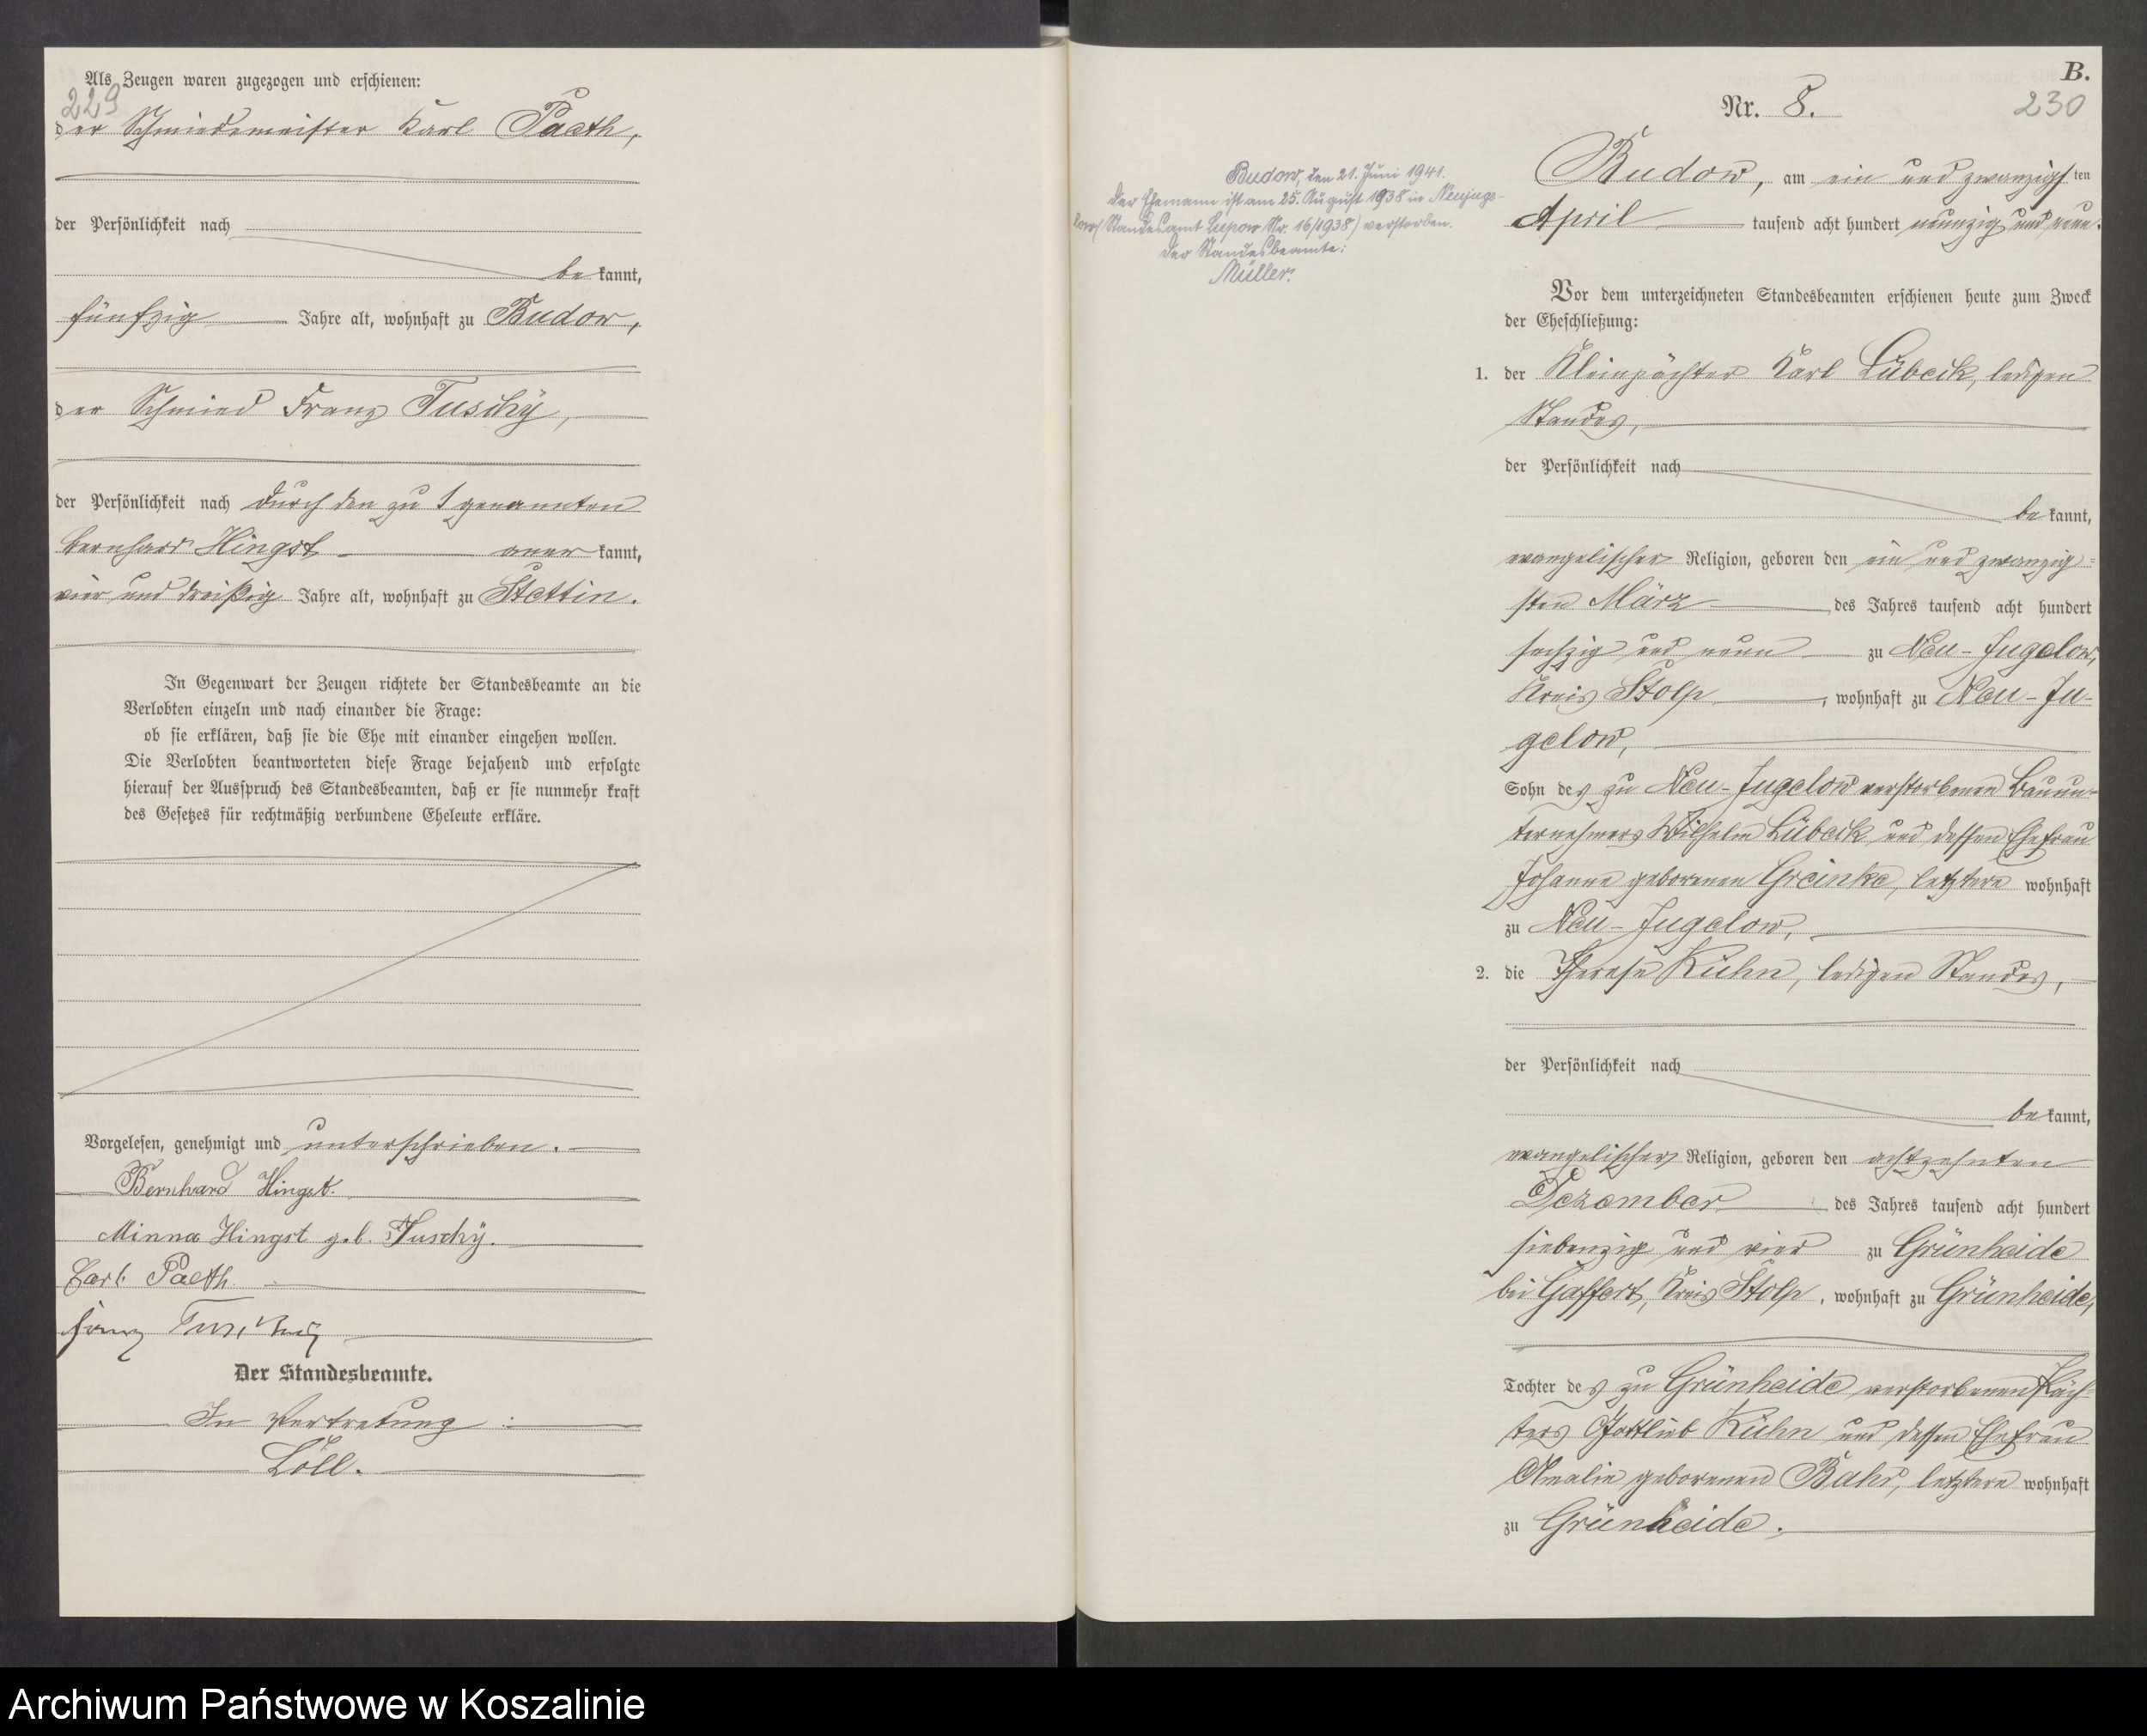 Als Zeugen waren zugezogen und erschienen:
229
der Schmiedemeister Karl Paeth,
der Persönlichkeit nach
be kannt,
fünfzig Jahre alt, wohnhaft zu Budow,
der Schmied Franz Tuschÿ,
der Persönlichkeit nach durch den zu 1 genannten
Bernhard Hingst aner kannt,
vier und dreißig Jahre alt, wohnhaft zu Stettin.
In Gegenwart der Zeugen richtete der Standesbeamte an die
Verlobten einzeln und nach einander die Frage:
ob sie erklären, daß sie die Ehe mit einander eingehen wollen.
Die Verlobten beantworteten diese Frage bejahend und erfolgte
hierauf der Ausspruch des Standesbeamten, daß er sie nunmehr kraft
des Gesetzes für rechtmäßig verbundene Eheleute erkläre.
Vorgelesen, genehmigt und unterschrieben.
Bernhard Hingst.
Minna Hingst geb. Tuschÿ.
Carl Paeth
Franz Tuschÿ
Der Standesbeamte.
In Vertretung:
Löll.
B.
230
Nr. 8.
Budow, am ein und zwanzigsten
April tausend acht hundert neunzig und neun.
Budow, den 21. Juni 1941.
Der Ehemann ist am 25. August 1938 in Neujuge-
low (Standesamt Lupow Nr. 16/1938) verstorben.
Der Standesbeamte:
Müller.
Vor dem unterzeichneten Standesbeamten erschienen heute zum Zweck
der Eheschließung:
1. der Kleinpächter Karl Lübeck, ledigen
Standes,
der Persönlichkeit nach
be kannt,
evangelischer Religion, geboren den ein und zwanzig-
sten März des Jahres tausend acht hundert
sechzig und neun zu Neu-Jugelow,
Kreis Stolp, wohnhaft zu Neu-Ju-
gelow,
Sohn des zu Neu-Jugelow verstorbenen Bauun-
ternehmers Wilhelm Lübeck und dessen Ehefrau
Johanne geborenen Greinke, letztere wohnhaft
zu Neu-Jugelow,
2. die Therese Kühn, ledigen Standes,
der Persönlichkeit nach
be kannt,
evangelischer Religion, geboren den achtzehnten
Dezember des Jahres tausend acht hundert
siebenzig und vier zu Grünheide
bei Gaffert, Kreis Stolp, wohnhaft zu Grünheide,
Tochter des zu Grünheide verstorbenen Päch-
ters Gottlieb Kühn und dessen Ehefrau
Amalie geborenen Bahr, letztere wohnhaft
zu Grünheide.
Archiwum Państwowe w Koszalinie